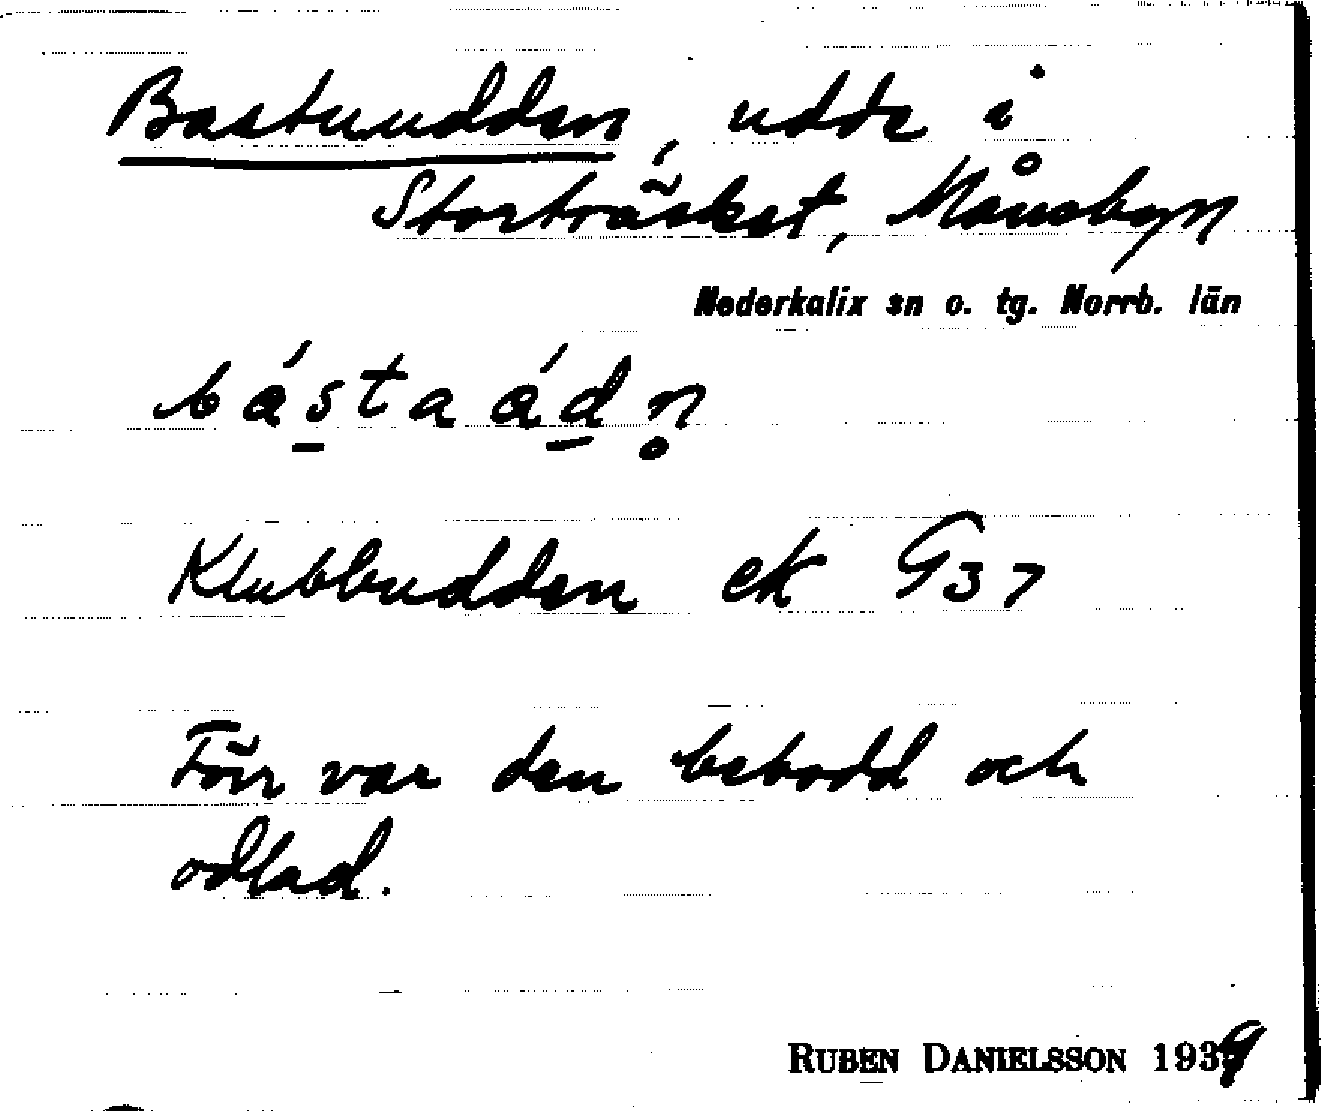 Bastuudden, udde i
Storträsket, Månsbyn
Nederkalix sn o. tg. Norrb. län
b á s̲ t a á d̲ n̥
Klubbudden ek G37
Förr var den bebodd och
odlad.
RUBEN DANIELSSON 1939